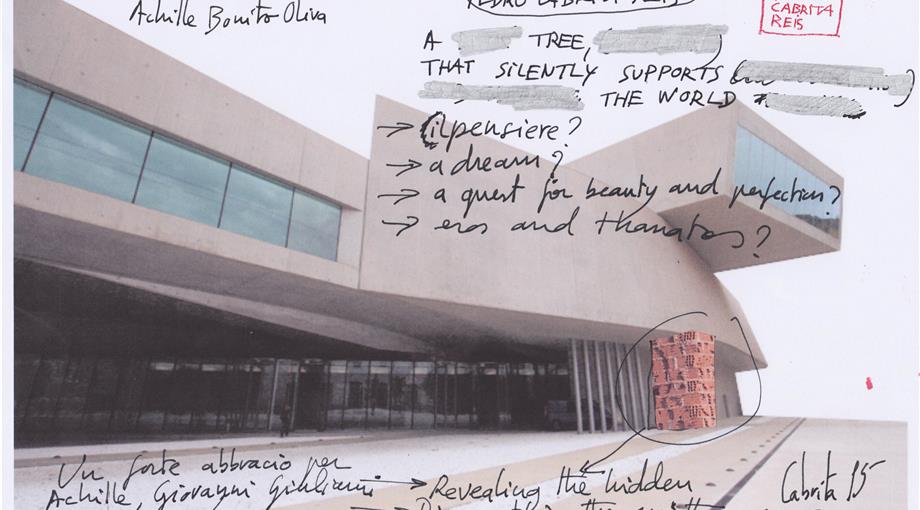 Achille Bonito Oliva
PEDRO CABRITA REIS
CABRITA
REIS
A TREE,
THAT SILENTLY SUPPORTS
THE WORLD
→ il pensiere?
→ a dream?
→ a quest for beauty and perfection?
→ eros and thanatos?
Un forte abbracio per
Achille, Giovanni
→ Revealing the hidden
Cabrita 15